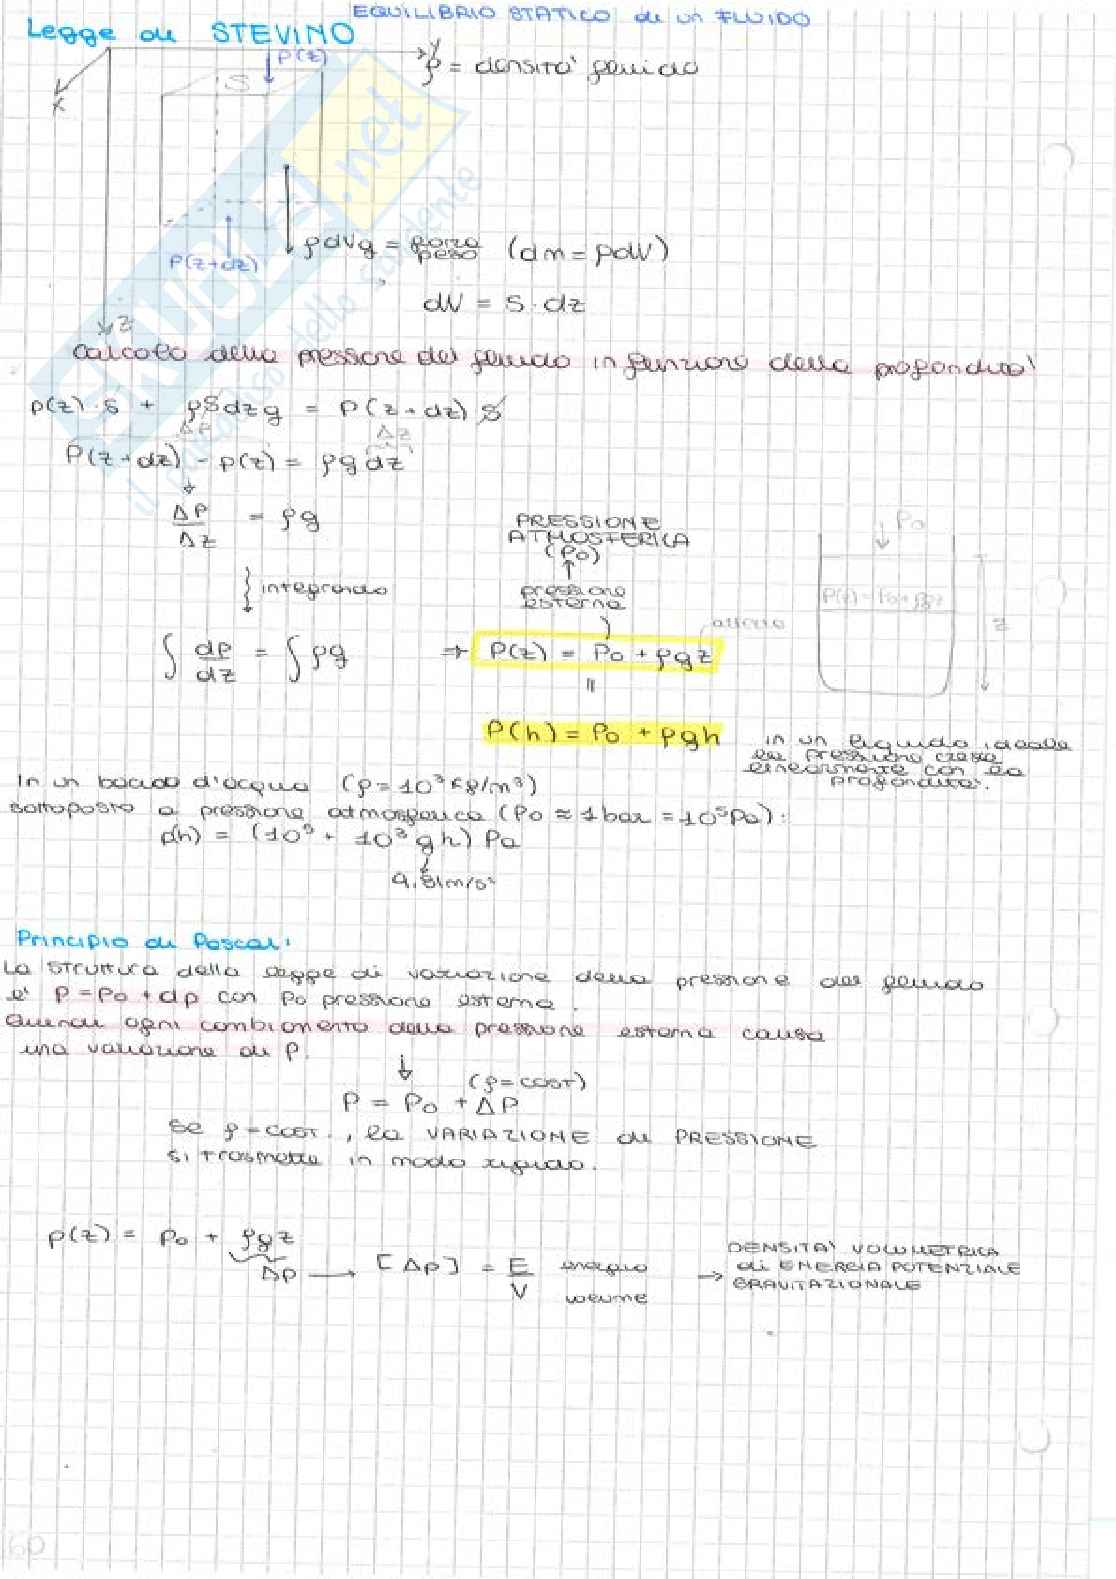 EQUILIBRIO STATICO di un FLUIDO
Legge di STEVINO
P(z)
y
ρ = densità fluido
S
x
ρdVg = forza peso (dm = ρdV)
P(z+dz)
dV = S · dz
z
Calcolo della pressione del fluido in funzione della profondità
p(z) · S + ρSdzg = P(z+dz) S
ΔP
Δz
P(z+dz) - p(z) = ρg dz
ΔP/Δz = ρg
PRESSIONE
ATMOSFERICA
(P0)
P0
integrando
pressione
esterna
P(z) = P0 + ρgz
z
∫ dp/dz = ∫ ρg ⇒ P(z) = P0 + ρgz
=
P(h) = P0 + ρgh
in un liquido ideale
la pressione cresce
linearmente con la
profondità.
In un bacino d'acqua (ρ = 10³ kg/m³)
sottoposto a pressione atmosferica (P0 ≈ 1 bar = 10⁵ Pa):
p(h) = (10⁵ + 10³ gh) Pa
9.81m/s²
Principio di Pascal:
La struttura della legge di variazione della pressione del fluido
è P = P0 + dp con P0 pressione esterna.
Quindi ogni cambiamento della pressione esterna causa
una variazione di P.
(ρ = cost)
P = P0 + ΔP
Se ρ = cost., la VARIAZIONE di PRESSIONE
si trasmette in modo rigido.
p(z) = P0 + ρgz
ΔP → [Δp] = E/V energia volume → DENSITA' VOLUMETRICA
di ENERGIA POTENZIALE
GRAVITAZIONALE
60
SKUOLA.net
il paradiso dello studente